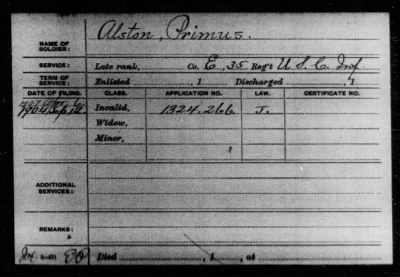 Alston, Primus.
NAME OF SOLDIER:
SERVICE: Late rank, Co. E, 35 Reg't U. S. C. Inf
TERM OF SERVICE: Enlisted , 1 Discharged , 1
DATE OF FILING. CLASS. APPLICATION NO. LAW. CERTIFICATE NO.
1904 Sep 12 Invalid, 1324.266 J.
Widow,
Minor,
1
ADDITIONAL SERVICES:
REMARKS:
Died , 1 , at